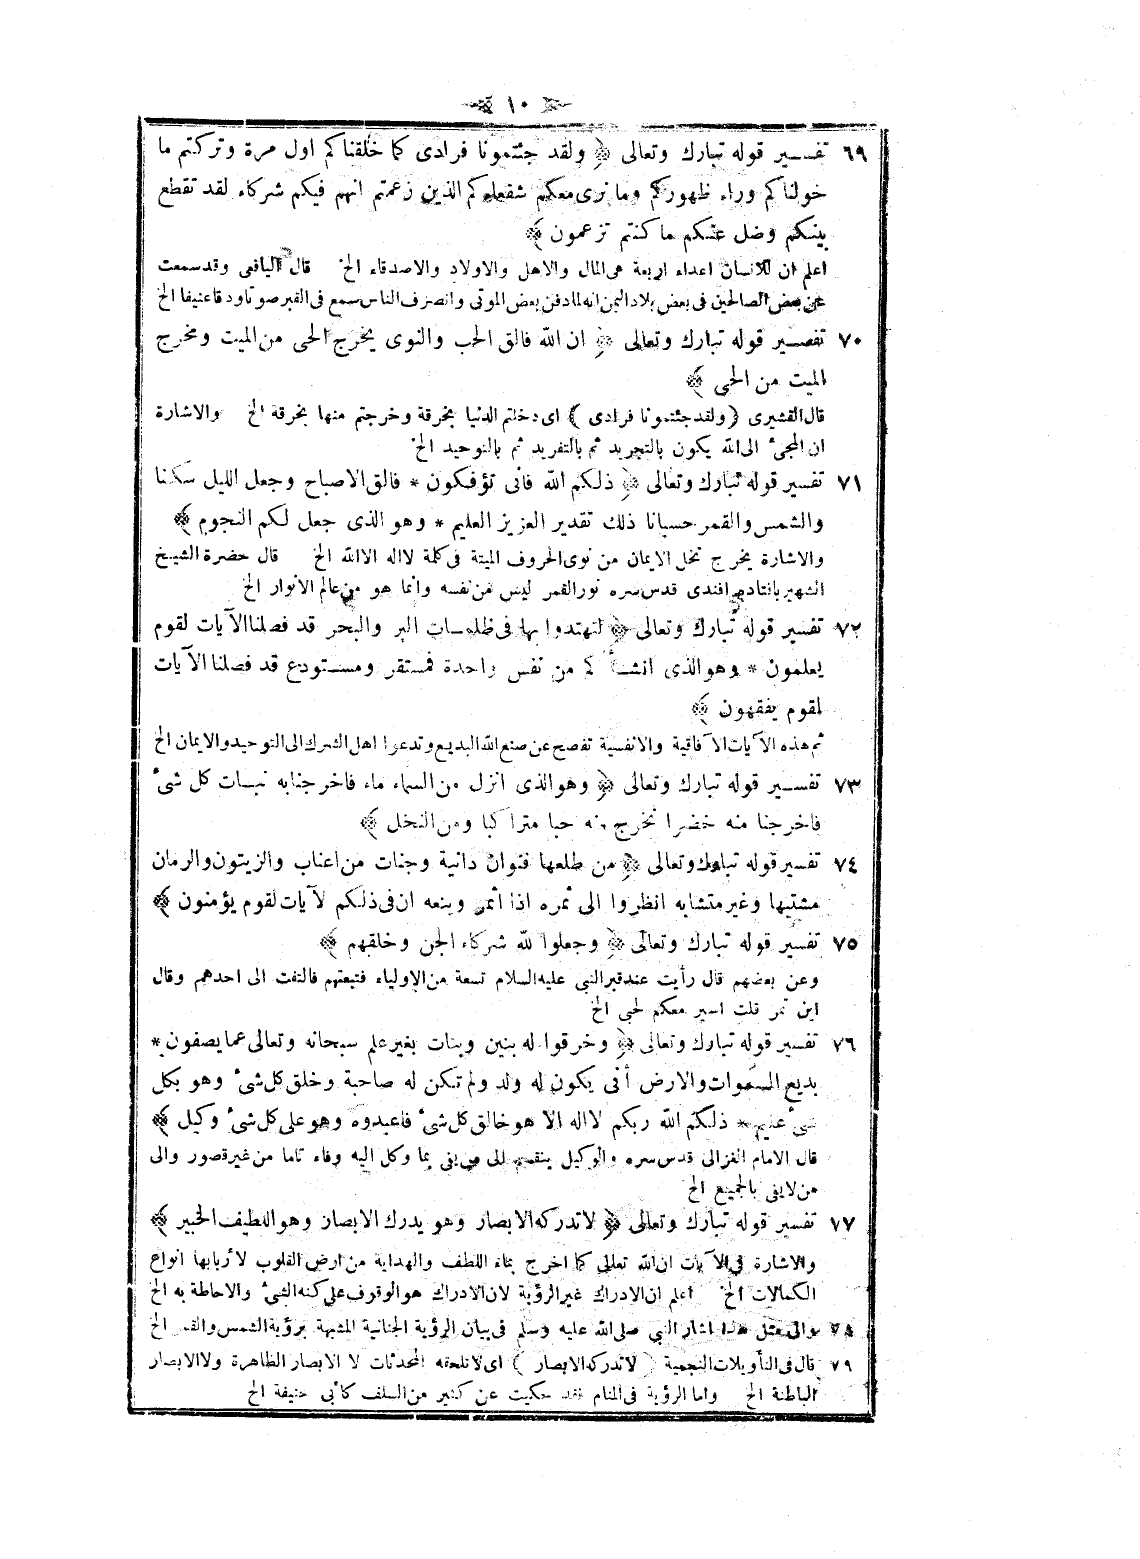 ١٠
٦٩ تفسير قوله تبارك وتعالى ﴿ ولقد جئتمونا فرادى كما خلقناكم اول مرة وتركتم ما
خولناكم وراء ظهوركم وما نرى معكم شفعاءكم الذين زعمتم انهم فيكم شركاء لقد تقطع
بينكم وضل عنكم ما كنتم تزعمون ﴾
اعلم ان للانسان اعداء اربعة هى المال والاهل والاولاد والاصدقاء الخ قال اليافعى وقد سمعت
عن بعض الصالحين فى بعض بلاد اليمن انه لما دفن بعض الموتى وانصرف الناس سمع فى القبر صوتا ودقا عنيفا الخ
٧٠ تفسير قوله تبارك وتعالى ﴿ ان الله فالق الحب والنوى يخرج الحى من الميت ومخرج
الميت من الحى ﴾
قال القشيرى (ولقد جئتمونا فرادى) اى دخلتم الدنيا بخرقة وخرجتم منها بخرقة الخ والاشارة
ان المجئ الى الله يكون بالتجريد ثم بالتفريد ثم بالتوحيد الخ
٧١ تفسير قوله تبارك وتعالى ﴿ ذلكم الله فانى تؤفكون * فالق الاصباح وجعل الليل سكنا
والشمس والقمر حسبانا ذلك تقدير العزيز العليم * وهو الذى جعل لكم النجوم ﴾
والاشارة يخرج نخل الايمان من نوى الحروف الميتة فى كلمة لا اله الا الله الخ قال حضرة الشيخ
الشهير بافتاده افندى قدس سره نور القمر ليس من نفسه وانما هو من عالم الانوار الخ
٧٢ تفسير قوله تبارك وتعالى ﴿ لتهتدوا بها فى ظلمات البر والبحر قد فصلنا الآيات لقوم
يعلمون * وهو الذى انشأ كم من نفس واحدة فمستقر ومستودع قد فصلنا الآيات
لقوم يفقهون ﴾
ثم هذه الآيات الآفاقية والانفسية تفصح عن صنع الله البديع وتدعوا اهل الشرك الى التوحيد والايمان الخ
٧٣ تفسير قوله تبارك وتعالى ﴿ وهو الذى انزل من السماء ماء فاخرجنا به نبات كل شئ
فاخرجنا منه خضرا نخرج منه حبا متراكبا ومن النخل ﴾
٧٤ تفسير قوله تبارك وتعالى ﴿ من طلعها قنوان دانية وجنات من اعناب والزيتون والرمان
مشتبها وغير متشابه انظروا الى ثمره اذا أثمر وينعه ان فى ذلكم لآيات لقوم يؤمنون ﴾
٧٥ تفسير قوله تبارك وتعالى ﴿ وجعلوا لله شركاء الجن وخلقهم ﴾
وعن بعضهم قال رأيت عند قبر النبى عليه السلام تسعة من الاولياء فتبعتهم فالتفت الى احدهم وقال
اين تمر قلت اسير معكم لحبى الخ
٧٦ تفسير قوله تبارك وتعالى ﴿ وخرقوا له بنين وبنات بغير علم سبحانه وتعالى عما يصفون *
بديع السموات والارض أنى يكون له ولد ولم تكن له صاحبة وخلق كل شئ وهو بكل
شئ عليم * ذلكم الله ربكم لا اله الا هو خالق كل شئ فاعبدوه وهو على كل شئ وكيل ﴾
قال الامام الغزالى قدس سره والوكيل ينقسم الى من يفى بما وكل اليه وفاء تاما من غير قصور والى
من لا يفى بالجميع الخ
٧٧ تفسير قوله تبارك وتعالى ﴿ لا تدركه الابصار وهو يدرك الابصار وهو اللطيف الخبير ﴾
والاشارة فى الآيات ان الله تعالى كما اخرج بماء اللطف والهداية من ارض القلوب لأربابها انواع
الكمالات الخ اعلم ان الادراك غير الرؤية لان الادراك هو الوقوف على كنه الشئ والاحاطة به الخ
٧٨ والى مثل هذا اشار النبى صلى الله عليه وسلم فى بيان الرؤية الجنانية المشبهة برؤية الشمس والقمر الخ
٧٩ قال فى التأويلات النجمية (لا تدركه الابصار) اى لا تلحقه المحدثات لا الابصار الظاهرة ولا الابصار
الباطنة الخ واما الرؤية فى المنام فقد حكيت عن كثير من السلف كأبى حنيفة الخ